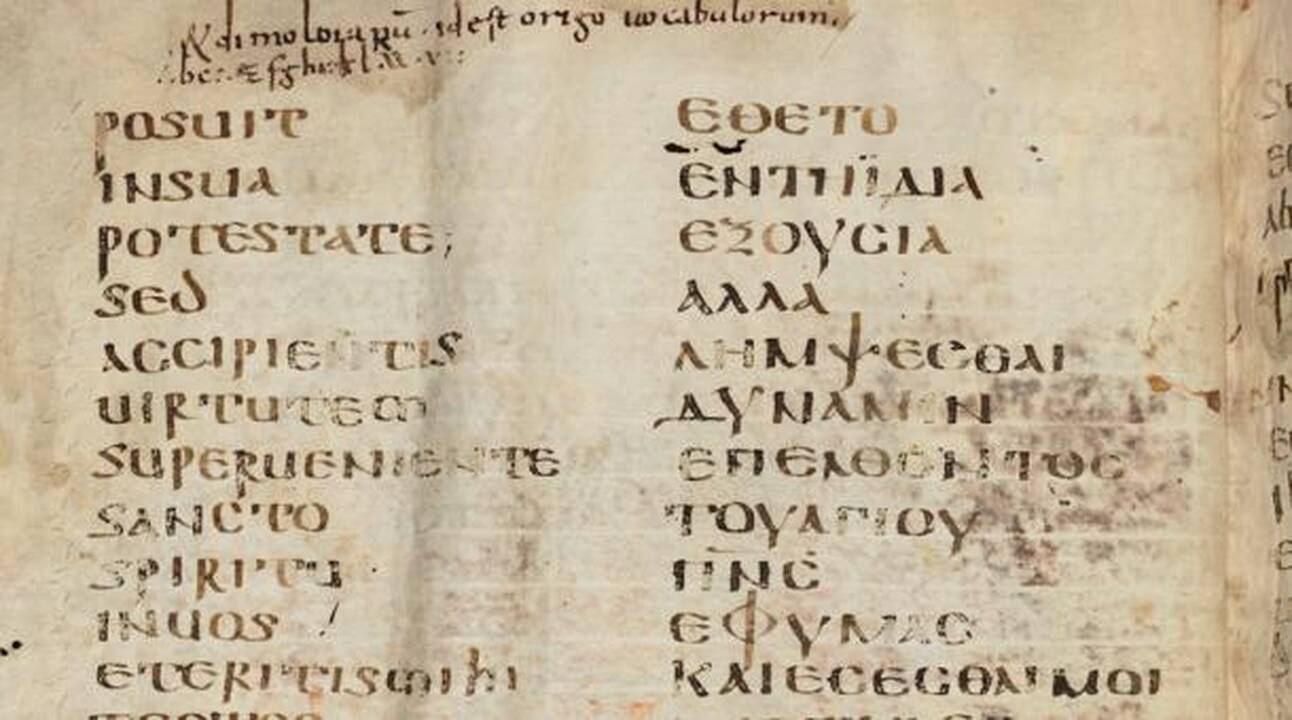 idest origo uocabulorum.
POSUIT ΕΘΕΤΟ
INSUA ΕΝΤΗΪΔΙΑ
POTESTATE; ΕΞΟΥCΙΑ
SED ΑΛΛΑ
ACCIPIENTIS ΛΗΜΨΕCΘΑΙ
UIRTUTEM ΔΥΝΑΜΙΝ
SUPERUENIENTE ΕΠΕΛΘΟΝΤΟC
SANCTO ΤΟΥΑΓΙΟΥ
SPIRITU ΠΝC
INUOS ΕΦΥΜΑC
ETERITISMIHI ΚΑΙΕCΕCΘΑΙΜΟΙ